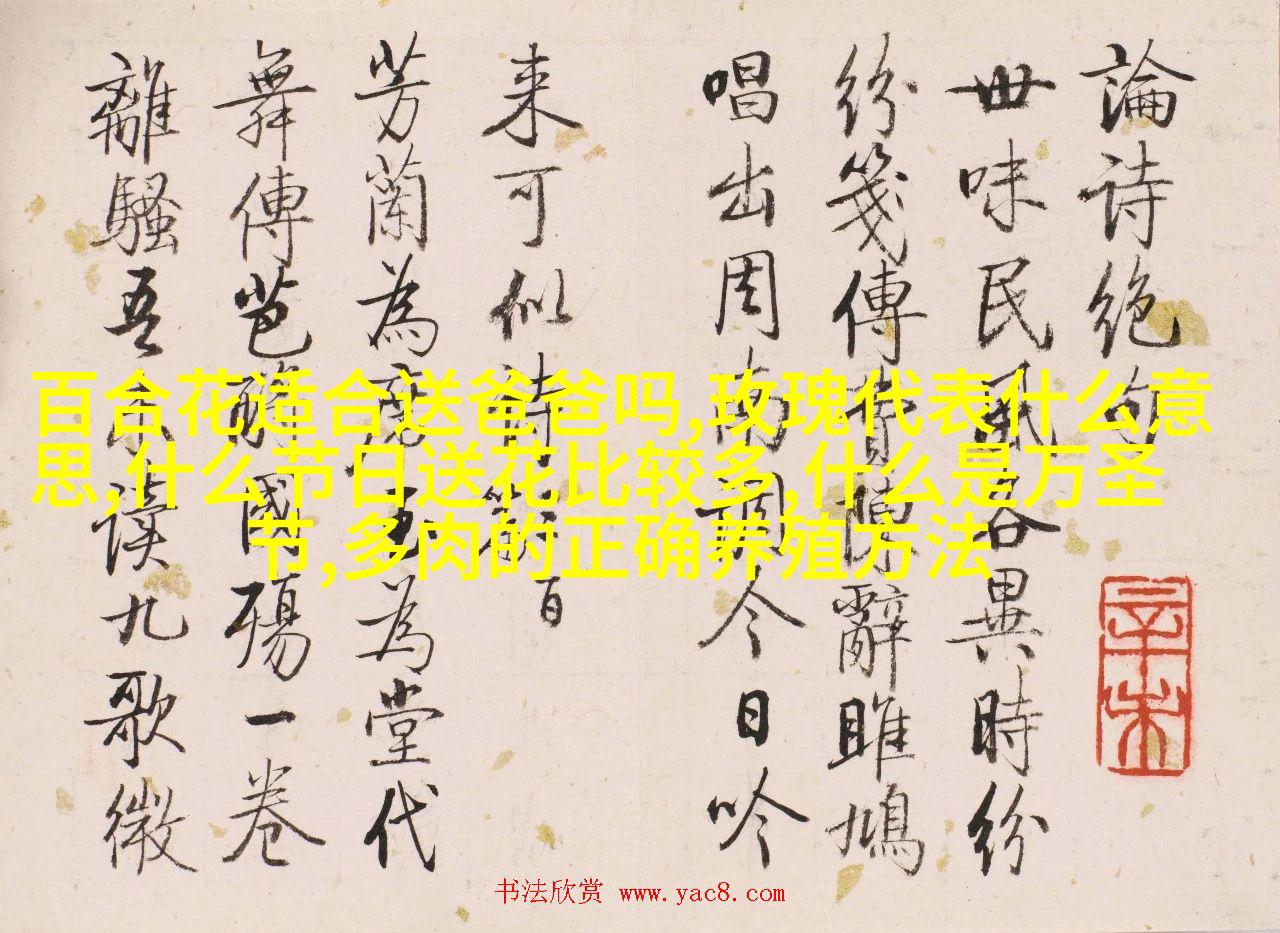 論诗绝句
世味民風各異時紛
紛箋傳費陳辭雎鳩
唱出周南調今日吟
来可似詩
芳蘭為席玉為堂代
舞傳芭酹國殤一卷
離騷吾未读九歌微
辛未
百合花适合送爸爸吗,玫瑰代表什么意
思,什么节日送花比较多,什么是万圣
节,多肉的正确养殖方法
书法欣赏 www.yac8.com